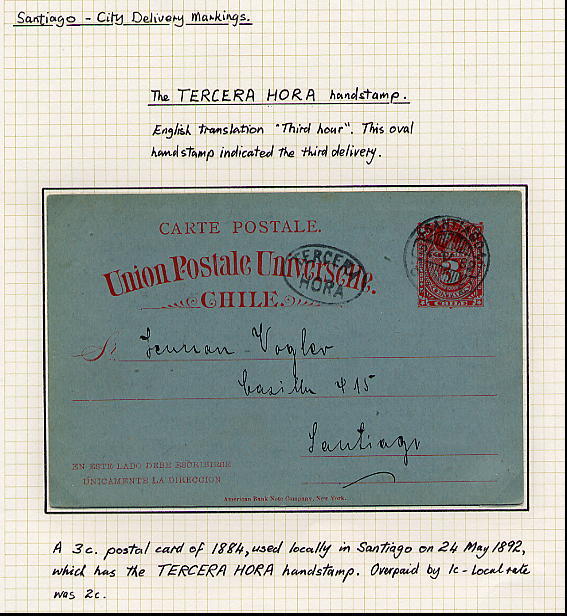 Santiago - City Delivery Markings.
The TERCERA HORA handstamp.
English translation "Third hour". This oval
handstamp indicated the third delivery.
CARTE POSTALE.
Union Postale Universelle.
CHILE.
TERCERA
HORA
SANTIAGO
3
CHILE
Sr. Herman Vogler
Casilla 415
Santiago
EN ESTE LADO DEBE ESCRIBIRSE
ÚNICAMENTE LA DIRECCION
American Bank Note Company, New York.
A 3c. postal card of 1884, used locally in Santiago on 24 May 1892,
which has the TERCERA HORA handstamp. Overpaid by 1c - local rate
was 2c.